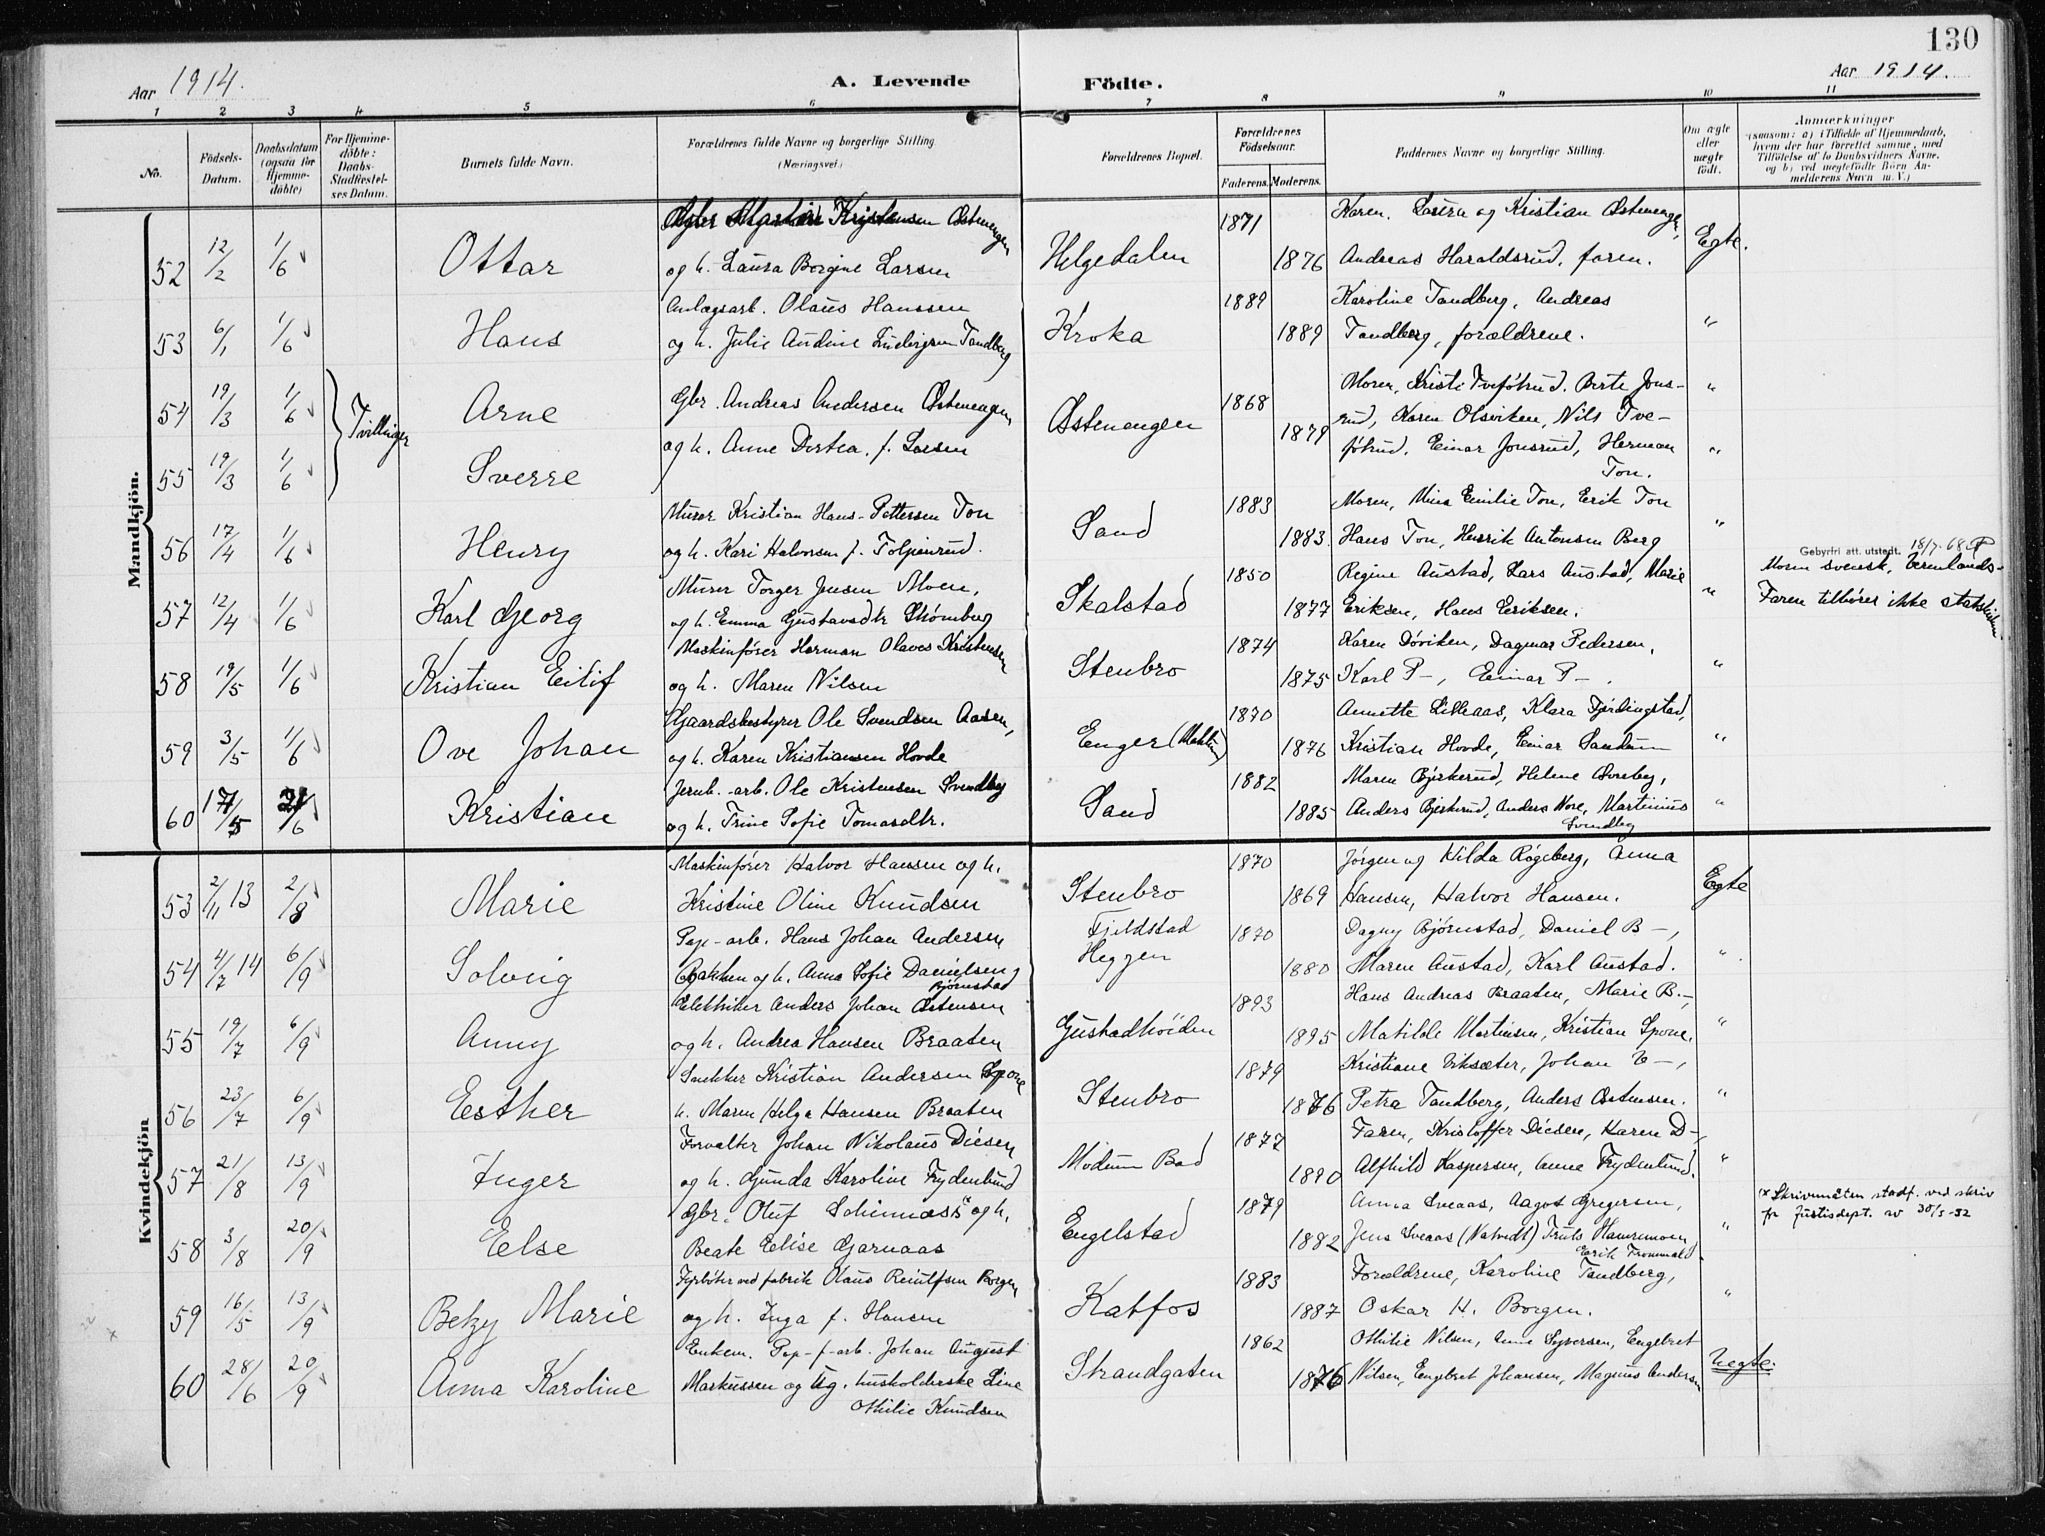 130
Aar 1914. A. Levende Födte. Aar 1914.
1 2 3 4 5 6 7 8 9 10 11
No. Födsels-Datum. Daabsdatum (ogsaa for Hjemme-döbte) For Hjemme-döbte: Daabs-Stadfæstel-ses Datum. Barnets fulde Navn. Forældrenes fulde Navne og borgerlige Stilling (Næringsvei.) Forældrenes Bopæl. Forældrenes Födselsaar. Faderens. Moderens. Faddernes Navne og borgerlige Stilling. Om ægte eller uægte födt. Anmærkninger (saasom: a) i Tilfælde af Hjemmedaab, hvem der har forrettet samme, med Tilföielse af to Daabsvidners Navne, og b) ved uegtefödte Börn An-melderens Navn m. V.)
Mandkjön.
Gbr Kristensen Østenengen 1871 Karen, Laura og Kristian Østenengen,
52 12/2 1/6 Ottar og h. Laura Borgine Larsen Helgedalen 1876 Andreas Haraldsrud, faren. Egte.
Anlægsarb. Olaus Hanssen 1889 Karoline Tandberg, Andreas
53 6/1 1/6 Hans og h. Julie Audine Tandberg Kroka 1889 Tandberg, forældrene. "
54 19/3 1/6 Tvillinger Arne Gbr. Andreas Andersen Østenengen Østenengen 1868 Moren, Kristi Tveføtrud, Berte Jons-
rud, Karen Olsviken, Nils Tve- "
55 19/3 1/6 Sverre og h. Anne Dortea f. Larsen 1879 føtrud, Einar Jonsrud, Herman
Ton. "
Murer Kristian Hans-Pettersen Ton 1883 Moren, Mina Emilie Ton, Erik Ton
56 17/4 1/6 Henry og h. Kari Halvorsen f. Foljenrud. Sand 1883. Hans Ton, Henrik Antonsen Berg "
Gebyrfri att. utstedt. 18/7-68
Murer Torger Jensen Moen, 1850 Regine Austad, Lars Austad, Marie Moren svensk, Vermlands-
57 12/4 1/6 Karl Georg og h. Emma Gustavsdtr Strömberg Skalstad 1877 Eriksen, Hans Eriksen. " Faren tilhører ikke statskirken
Maskinfører Herman Olaves Kristensen 1874 Karen Døviken, Dagmar Pedersen,
58 19/5 1/6 Kristian Eilif og h. Maren Nilsen Stenbro 1875 Karl P—, Einar P—. "
Gaardsbestyrer Ole Svendsen Aasen, 1870 Annette Lilleaas, Klara Fjerdingstad,
59 3/5 1/6 Ove Johan og h. Karen Kristiansen Hovde Enger 1876 Kristian Hovde, Einar Sandum "
Jernb.-arb. Ole Kristensen Svendby 1882 Maren Bjerkerud, Helene Overby,
60 17/5 21/6 Kristian og h. Trine Sofie Tomasdtr. Sand 1885 Anders Bjerkerud, Anders Nore, Martinius
Svendby "
Kvindekjön
Maskinfører Halvor Hansen og h. 1870 Jørgen og Hilda Røgeberg, Anna
53 2/11 13 2/8 Marie Kristine Oline Knudsen Stenbro 1869 Hansen, Halvor Hansen. Egte
Pap-arb. Hans Johan Andersen Fjeldstad 1870 Dagny Bjørnstad, Daniel B—,
54 4/7 14 6/9 Solveig Bakken og h. Anna Sofie Danielsen Heggen 1880 Maren Austad, Karl Austad. "
Bjørnstad
Elektriker Anders Johan Østensen 1893 Hans Andreas Braaten, Marie B.—,
55 19/7 6/9 Anny og h. Andrea Hansen Braaten Gustadhöiden 1895 Matilde Martinsen, Kristian Spone. "
Snekker Kristian Andersen Spone 1879 Kristiane Viksæter, Johan V—,
56 23/7 6/9 Esther h. Maren Helga Hansen Braaten Stenbro 1876 Petra Tandberg, Anders Østensen. "
Forvalter Johan Nikolaus Diesen 1877 Faren, Kristoffer Diesen, Karen D—,
57 21/8 13/9 Inger og h. Gunda Karoline Frydenlund Modum Bad 1890 Alfhild Kaspersen, Anna Frydenlund. "
Gbr. Oluf Schinnæss x og h. 1879 Anna Sveaas, Aagot Gregersen, (x Skrivemåten stadf. ved skriv
58 3/8 20/9 Else Beate Elise Gjarnaas Engelstad 1882 Jens Sveaas (Natvedt) Truls Hammeren, " fr Justisdept. av 30/5-32
Erik Frommald
Fyrböter ved fabrik Olaus Reinilfsen Borgen 1883 Forældrene, Karoline Tandberg,
59 16/5 13/9 Betzy Marie og h. Inga f. Hansen Katfos 1887 Oskar H. Borgen. "
Enkem. Pap-f-arb. Johan August 1862 Othilie Nilsen, Anne Syversen, Engebret
60 28/6 20/9 Anna Karoline Markussen og ug. husholderske Line Strandgaten 1876 Nilsen, Engebret Johansen, Magnus Andersen Uegte.
Othilie Knudsen